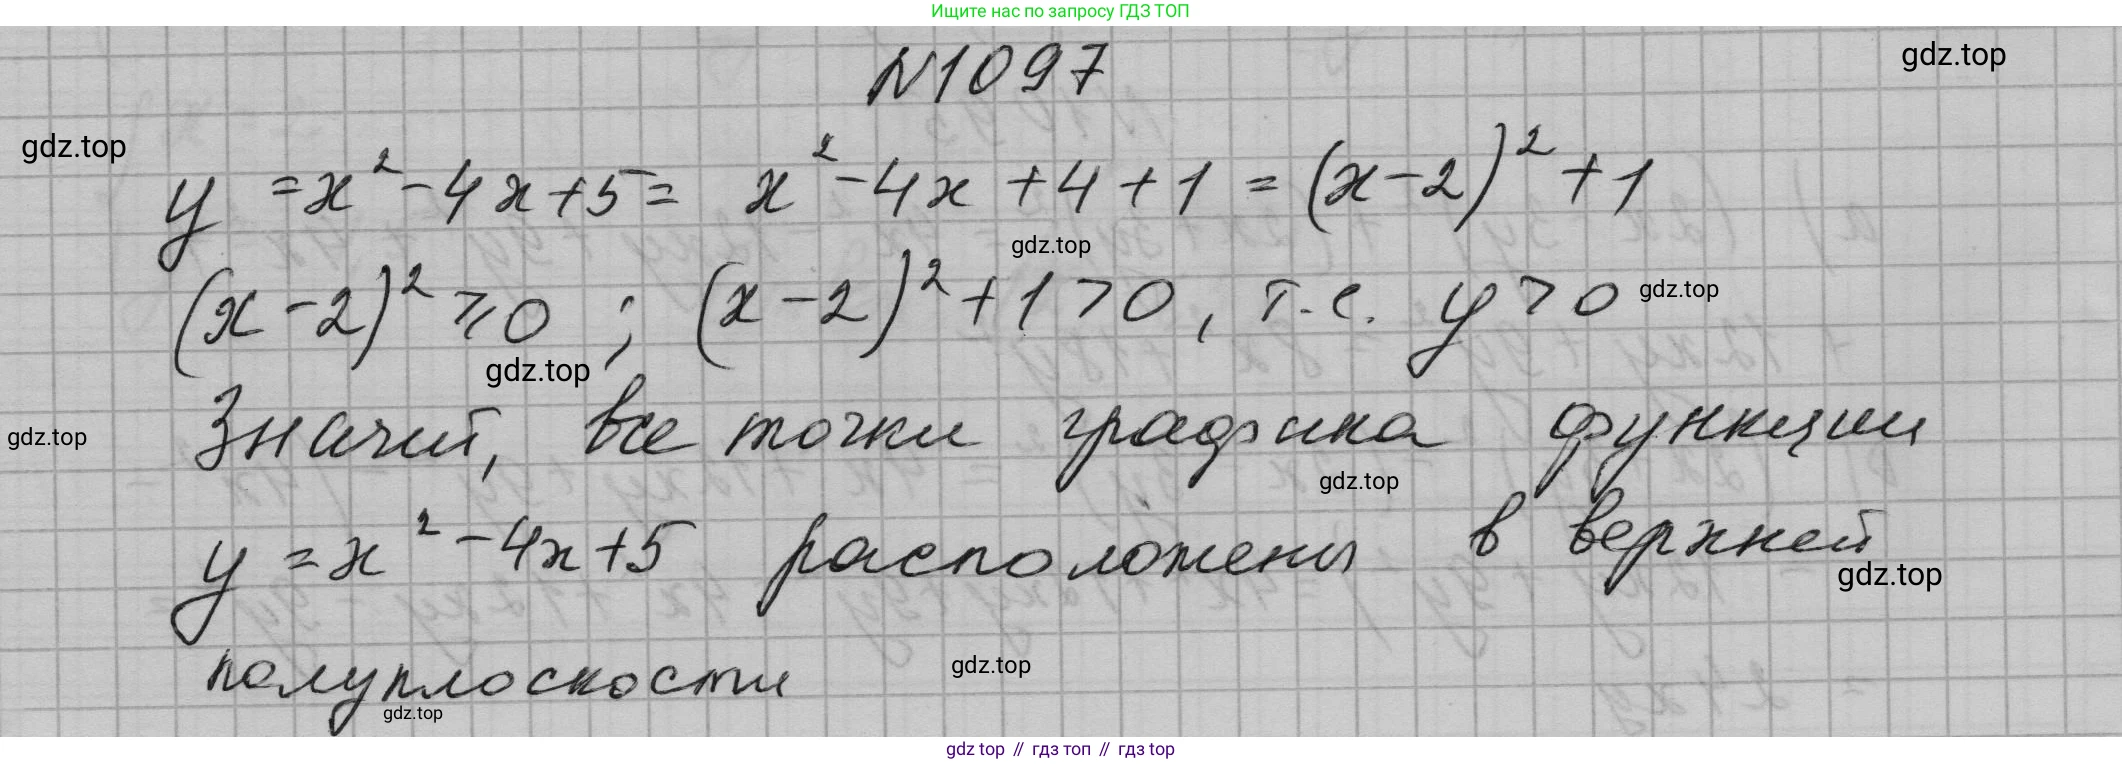 Ищите нас по запросу ГДЗ ТОП
№1097
gdz.top
gdz.top
y = x² - 4x + 5 = x² - 4x + 4 + 1 = (x - 2)² + 1
gdz.top
(x - 2)² ⩾ 0 ; (x - 2)² + 1 > 0 , т.е. y > 0
gdz.top
gdz.top
Значит, все точки графика функции
gdz.top
gdz.top
y = x² - 4x + 5 расположены в верхней
gdz.top
полуплоскости
gdz.top
gdz.top
gdz top // гдз топ // гдз top